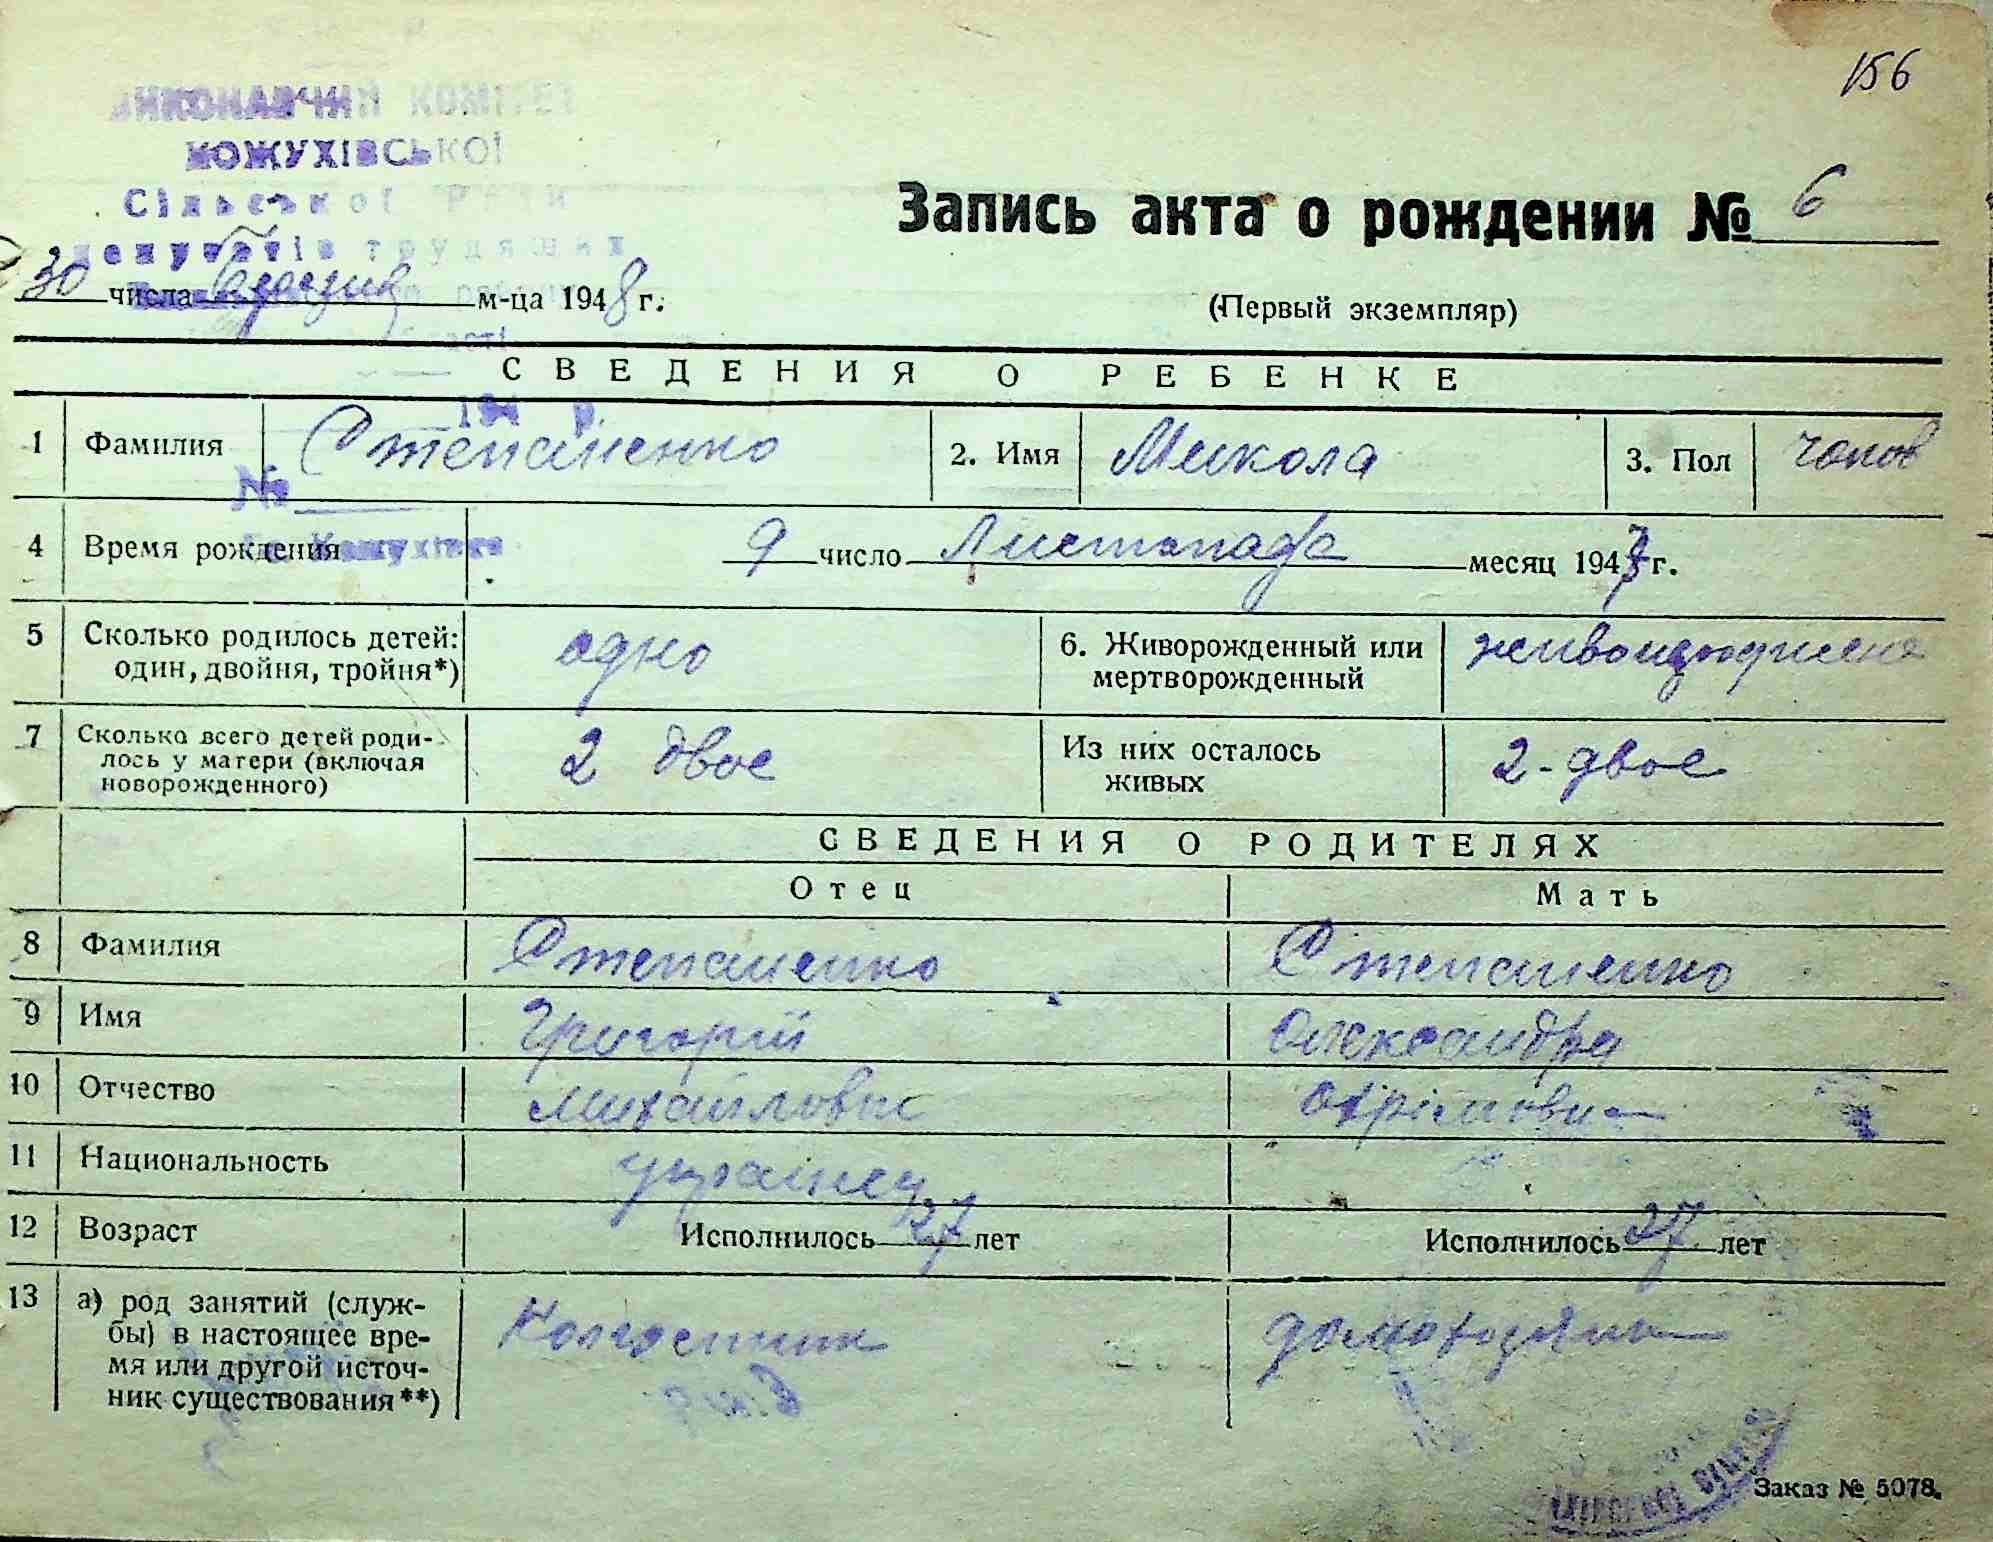 156
ВИКОНАВЧИЙ КОМІТЕТ
КОЖУХІВСЬКОЇ
Сільської Ради
депутатів трудящих
Запись акта о рождении № 6
30 числа м-ца 1948 г.
(Первый экземпляр)
СВЕДЕНИЯ О РЕБЕНКЕ
194 р.
1 Фамилия Степаненко 2. Имя Микола 3. Пол чолов
№
с. Кожухівка
4 Время рождения 9 число Листопада месяц 1947 г.
5 Сколько родилось детей: один, двойня, тройня*) одно 6. Живорожденный или мертворожденный
7 Сколько всего детей родилось у матери (включая новорожденного) 2 двое Из них осталось живых 2-двое
СВЕДЕНИЯ О РОДИТЕЛЯХ
Отец Мать
8 Фамилия Степаненко Степаненко
9 Имя Григорій Олександра
10 Отчество Михайлович
11 Национальность українец
12 Возраст Исполнилось 27 лет Исполнилось 27 лет
13 а) род занятий (служ-
бы) в настоящее вре-
мя или другой источ-
ник существования**)
Колгоспник
Заказ № 5078.